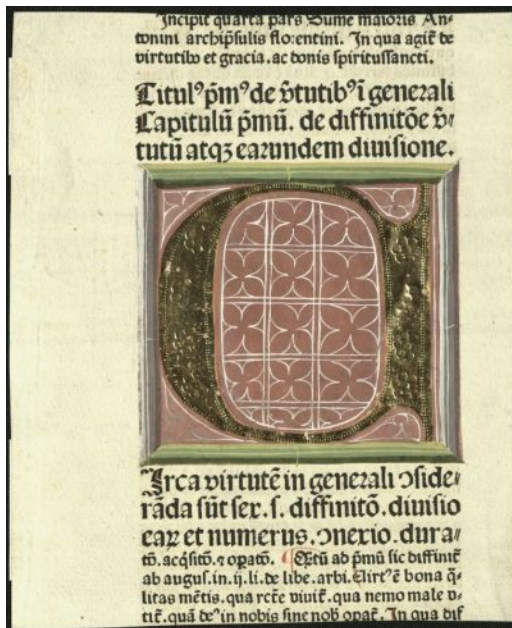 Incipit quarta pars Sume maioris An⸗
tonini archip̄sulis florentini. In qua agit᷑ de
virtutibꝰ et gracia. ac donis spiritussancti.
Titulꝰ p̄mꝰ de v̄tutibꝰ ī generali
Capitulū p̄mū. de diffinitōe v̄⸗
tutū atqꝫ earundem diuisione.
C
Irca virtutē in generali ↄside⸗
rāda sūt sex. s. diffinitō. diuisio
eaꝝ et numerus. ↄnexio. dura⸗
tō. acq̄sitō. ⁊ oꝑatō. ¶ Qꝫtū ad p̄mū sic diffinit᷑
ab augus. in. ij. li. de libe. arbi. Uirtꝰ ē bona q̄⸗
litas mētis. qua rc̄te viuit᷑. qua nemo male v⸗
tit᷑. quā deꝰ in nobis sine nob̄ oꝑat᷑. In qua dif